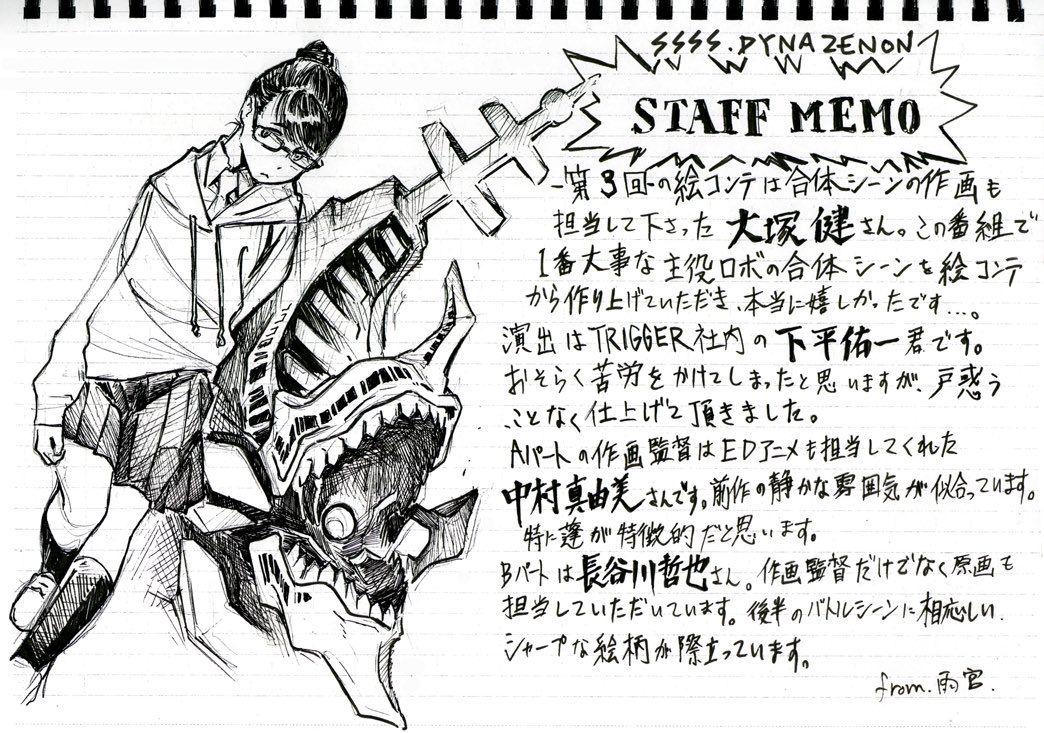 SSSS.DYNAZENON
STAFF MEMO
第3回の絵コンテは合体シーンの作画も
担当して下さった大塚健さん。この番組で
1番大事な主役ロボの合体シーンを絵コンテ
から作り上げていただき、本当に嬉しかったです...。
演出はTRIGGER社内の下平佑一君です。
おそらく苦労をかけてしまったと思いますが、戸惑う
ことなく仕上げて頂きました。
Aパートの作画監督はEDアニメも担当してくれた
中村真由美さんです。前作の静かな雰囲気が似合っています。
特に蓬が特徴的だと思います。
Bパートは長谷川哲也さん。作画監督だけでなく原画も
担当していただいています。後半のバトルシーンに相応しい
シャープな絵柄が際立っています。
from.雨宮.